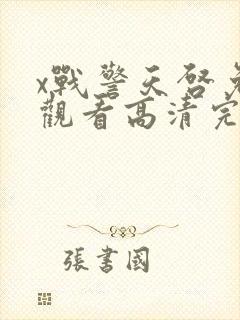 x戰警天啓免
觀看高清完
張書國